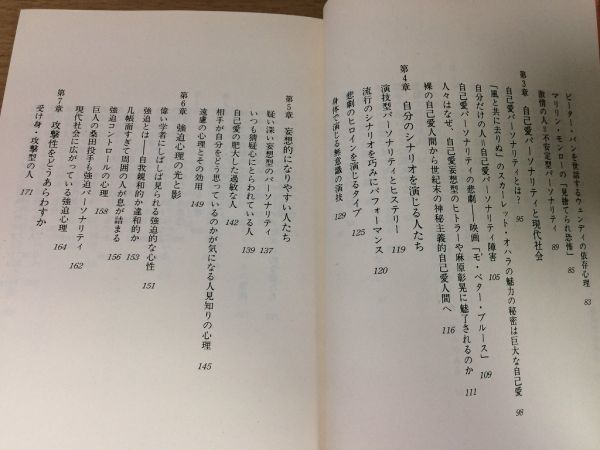 ピーター・パンを世話するウェンディの依存心理 83
マリリン・モンローの「見捨てられ恐怖」 85
激情の人=不安定型パーソナリティ 89
第3章 自己愛パーソナリティと現代社会
自己愛パーソナリティとは? 95
「風と共に去りぬ」のスカーレット・オハラの魅力の秘密は巨大な自己愛 98
自分だけの人=自己愛パーソナリティ障害 105
自己愛パーソナリティの悲劇——映画「モ・ベター・ブルース」 109
人々はなぜ、自己愛妄想型のヒトラーや麻原彰晃に魅了されるのか 111
裸の自己愛人間から世紀末の神秘主義的自己愛人間へ 116
第4章 自分のシナリオを演じる人たち
演技型パーソナリティとヒステリー 119
流行のシナリオを巧みにパフォーマンス 120
悲劇のヒロインを演じるタイプ 125
身体で演じる無意識の演技 129
第5章 妄想的になりやすい人たち
疑い深い妄想型のパーソナリティ 137
いつも猜疑心にとらわれている人 139
自己愛の肥大した過敏な人 142
相手が自分をどう思っているのかが気になる人見知りの心理 145
遠慮の心理とその効用 149
第6章 強迫心理の光と影
偉い学者にしばしば見られる強迫的な心性 151
強迫とは——自我親和的か違和的か 153
几帳面すぎて周囲の人が息が詰まる 156
強迫コントロールの心理 158
巨人の桑田投手も強迫パーソナリティ 162
現代社会に広がっている強迫心理 164
第7章 攻撃性をどうあらわすか
受け身・攻撃型の人 171